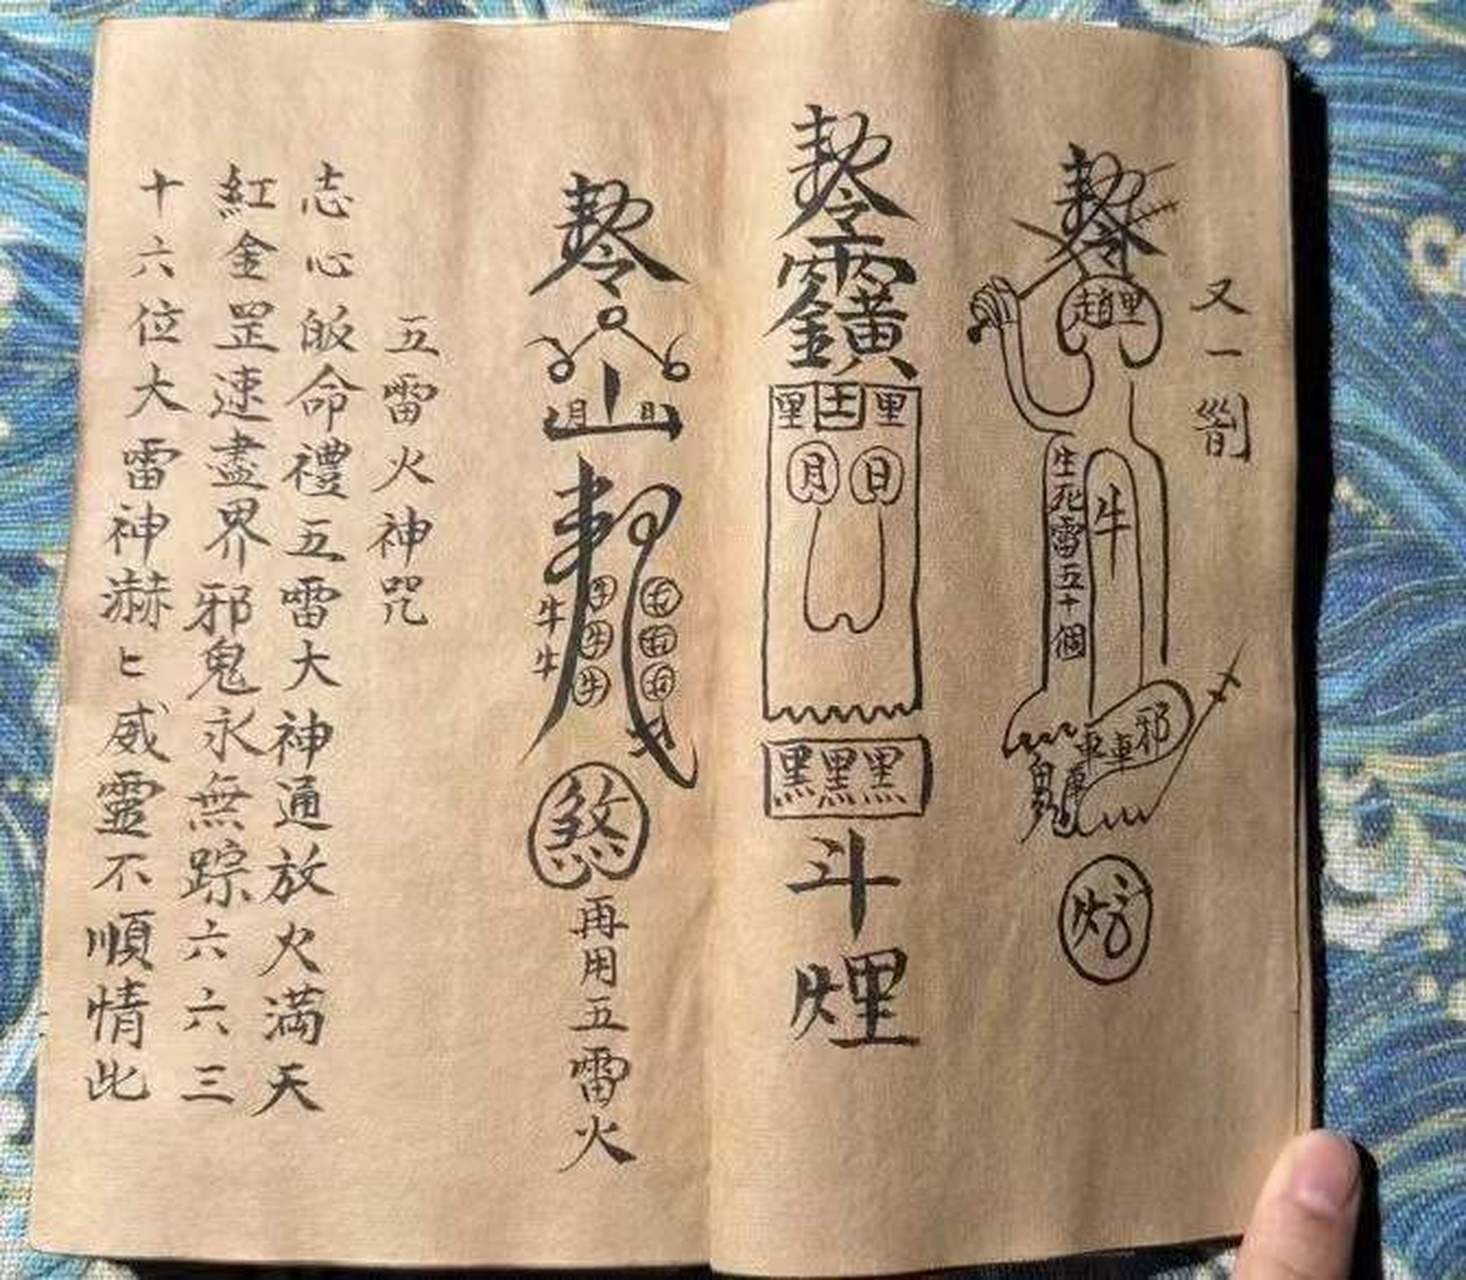 又一劄
趙里
生死雷五十個
牛
邪
車車
鬼
里土里
月日
黑黑黑
斗煙
山
月日
牛牛
牛牛牛
煞
再用五雷火
五雷火神咒
志心皈命禮五雷大神通放火滿天
紅金罡速盡界邪鬼永無踪六六三
十六位大雷神瀨匕威靈不順情此